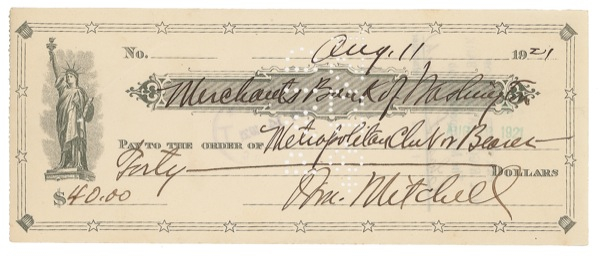 No. Aug. 11 1921
Merchants Bank of Washington
PAY TO THE ORDER OF Metropolitan Club or Bearer
Forty DOLLARS
$40.00 Wm. Mitchell